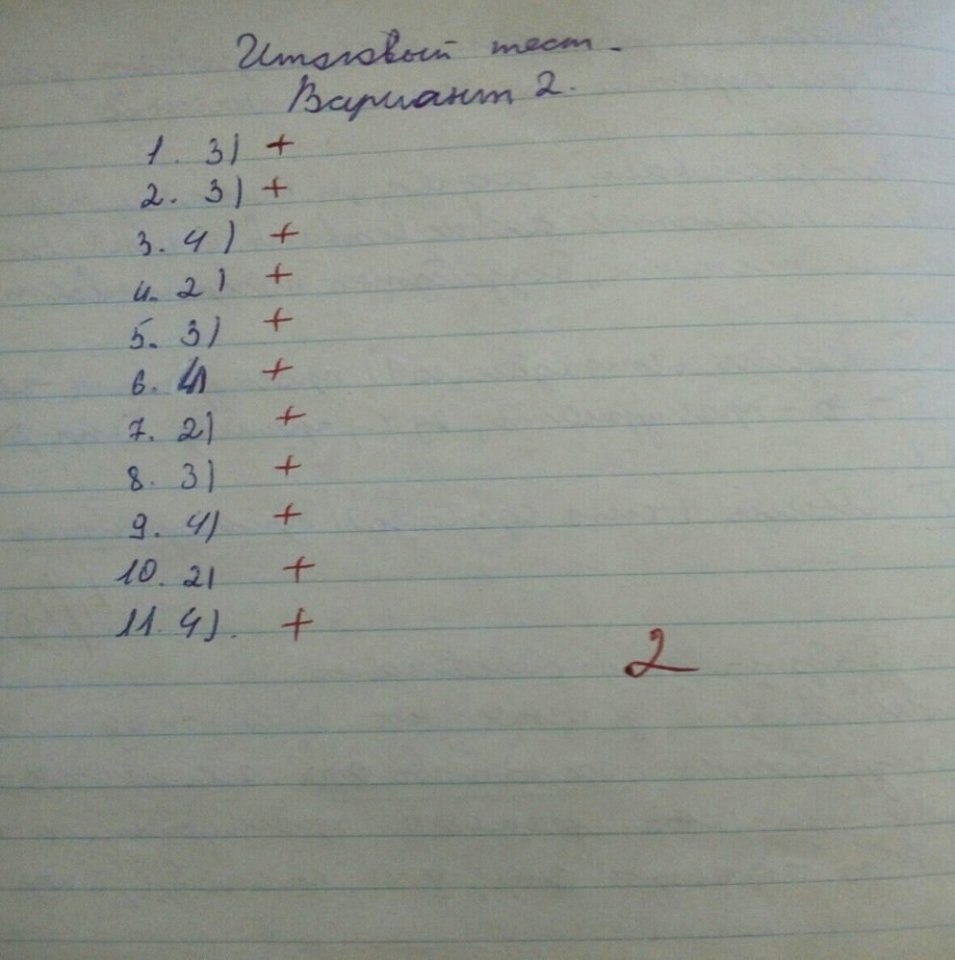 Итоговый тест.
Вариант 2.
1. 3) +
2. 3) +
3. 4) +
4. 2) +
5. 3) +
6. 4) +
7. 2) +
8. 3) +
9. 4) +
10. 2) +
11. 4). +
2